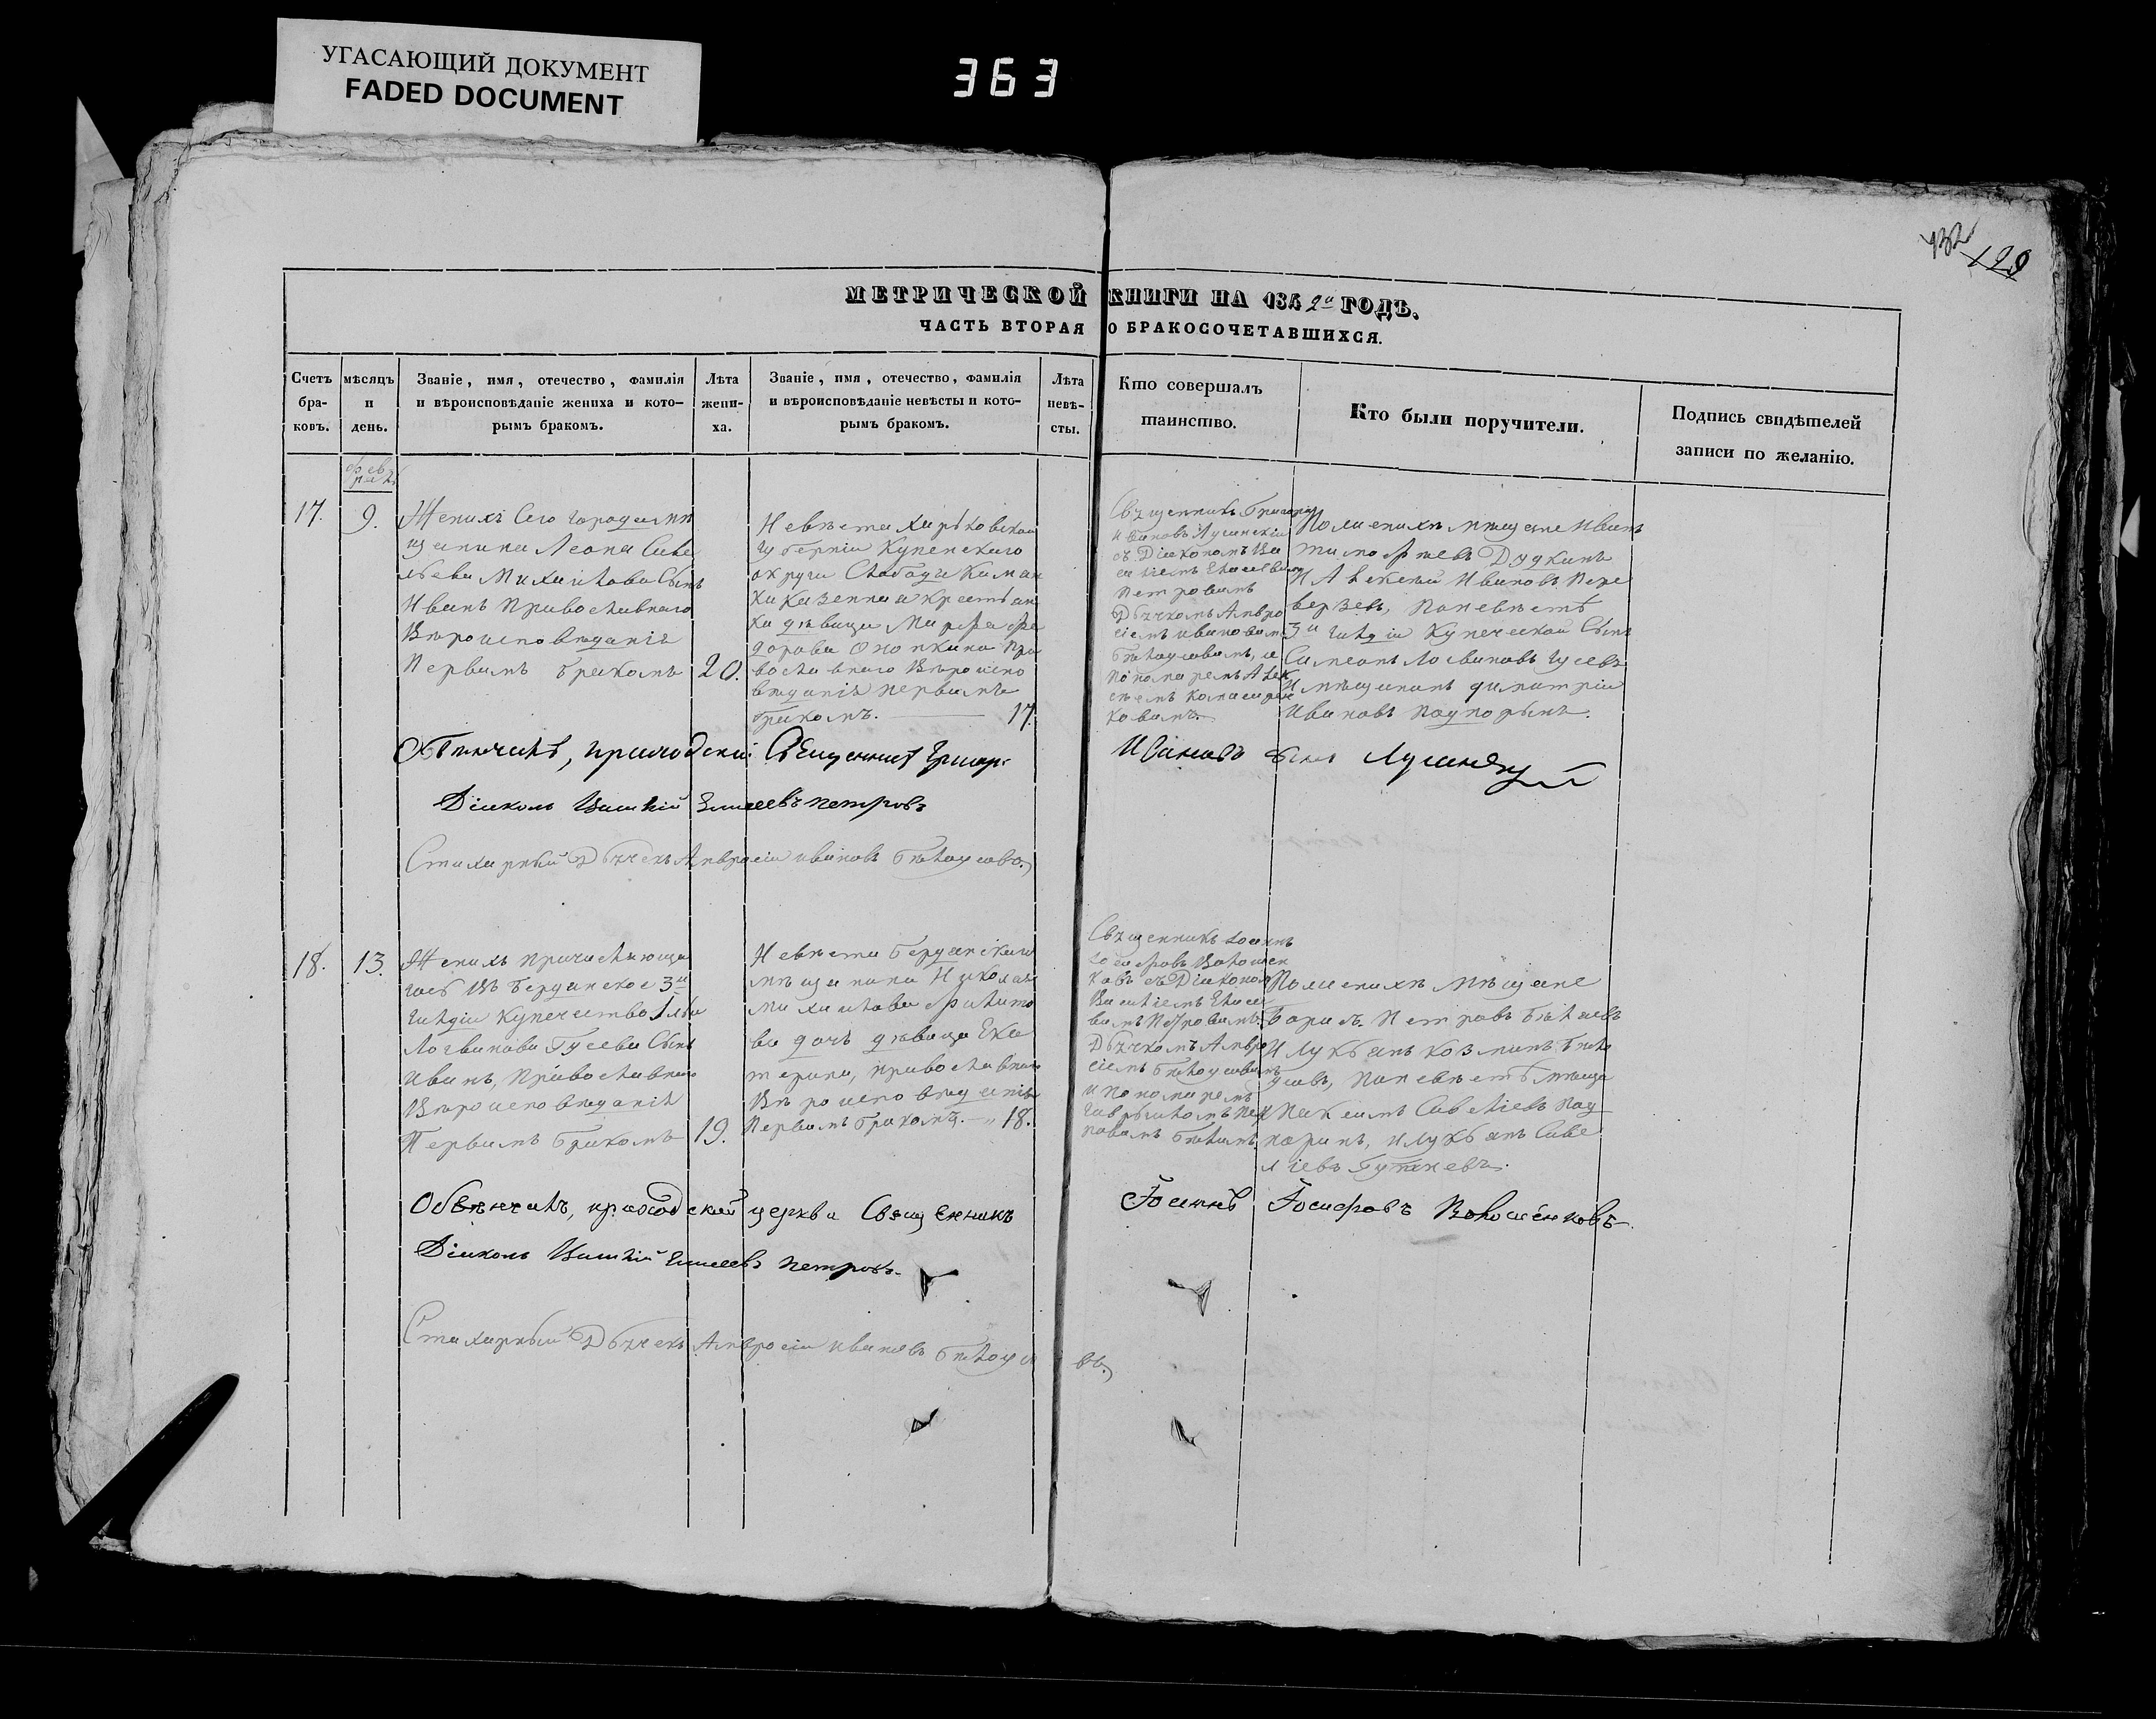 УГАСАЮЩИЙ ДОКУМЕНТ
FADED DOCUMENT
363
132
129
МЕТРИЧЕСКОЙ КНИГИ НА 1842й ГОДЪ.
ЧАСТЬ ВТОРАЯ О БРАКОСОЧЕТАВШИХСЯ.
Счетъ
бра-
ковъ.
мѣсяцъ
и
день.
Званіе, имя, отечество, фамилія
и вѣроисповѣданіе жениха и кото-
рымъ бракомъ.
Лѣта
жени-
ха.
Званіе, имя, отечество, фамилія
и вѣроисповѣданіе невѣсты и кото-
рымъ бракомъ.
Лѣта
невѣ-
сты.
Кто совершалъ
таинство.
Кто были поручители.
Подпись свидѣтелей
записи по желанію.
17.
9.
Женихъ Сего города мѣ
щанина Леона Саве
льева Михайлова Сынъ
Иванъ Православнаго
Вѣроисповѣданія
Первымъ бракомъ
20.
Невѣста Харьковской
губерніи Купенскаго
округи Слободы
казенная крестьян
ка дѣвица Марфа Фе
дорова При
вославнаго Вѣроиспо
вѣданія первымъ
бракомъ.
17.
Священникъ Григорій
Ивановъ Лушинскій
съ Діакономъ Ва
силіемъ Елисеевымъ
Петровымъ
Дьячкомъ Амвро
сіемъ Ивановымъ
Бѣлоусовымъ, и
Пономаремъ Алек
сѣемъ
ковымъ.
По женихѣ мѣщане Иванъ
Тимофѣевъ Дудкинъ
И Алексѣй Ивановъ Пере
верзевъ, По невѣстѣ
3й гилдіи Купеческой Сынъ
Симеонъ Логвиновъ Гусевъ
И мѣщанинъ Димитрій
Ивановъ
Обвѣнчалъ, приходскій Священникъ Григор:
Ивановъ сынъ Лушинскій
Діаконъ Василій Елисеевъ Петровъ
Стихарный Дьячекъ Амвросій Ивановъ Бѣлоусовъ.
18.
13.
Женихъ причисляюща
гось Въ Бердянское 3й
гилдіи купечество
Логвинова Гусева Сынъ
Иванъ, Православнаго
Вѣроисповѣданія
Первымъ бракомъ
19.
Невѣста Бердянскаго
мѣщанина Николая
Михайлова Филато
ва дочь дѣвица Ека
терина, православнаго
Вѣроисповѣданія
Первымъ бракомъ.
18.
Священникъ Іоаннъ
Іосифовъ Волошен
ковъ съ Діакономъ
Василіемъ Елисее
вымъ Петровымъ.
Дьячкомъ Амвро
сіемъ Бѣлоусовымъ
и Пономаремъ
По женихѣ Мѣщане
Борисъ Петровъ Бѣляевъ
И Лукьянъ Козминъ Бѣло
усовъ, По невѣстѣ мѣща
Савеліевъ
и Лукьянъ Саве
ліевъ
Обвѣнчалъ, приходской церкви Священникъ
Іоаннъ Іосифовъ Волошенковъ.
Діаконъ Василій Елисеевъ Петровъ.
Стихарный Дьячекъ Амвросій Ивановъ Бѣлоусовъ.